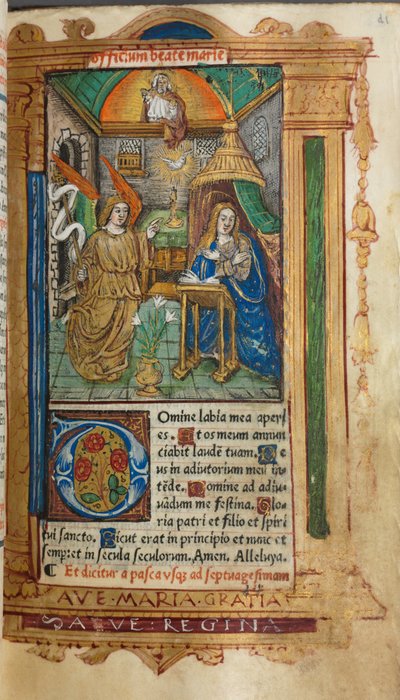 Officium beate marie
Domine labia mea aperi
es. Et os meum annun
ciabit laudē tuam. De
us in adiutorium meū in
tēde. Domine ad adiu
uādum me festina. Glo
ria patri et filio et spiri
tui sancto. Sicut erat in principio et nunc et
semp: et in secula seculorum. Amen. Alleluya.
¶ Et dicitur a pasca vsqȝ ad septuagesimam
AVE·MARIA·GRATIA
SALVE:REGINA